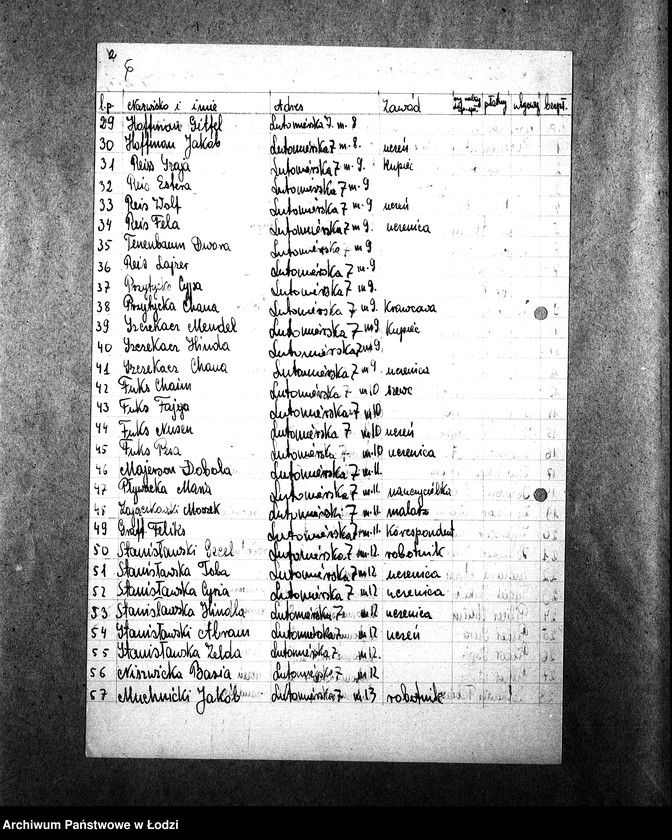 l.p. Nazwisko i imię Adres Zawód płatny ulgowy bezpł.
29 Hoffman Gittel Lutomierska 7. m. 8
30 Hoffman Jakób Lutomierska 7 m. 8. uczeń
31 Reis Graja Lutomierska 7 m. 9. kupiec
32 Reis Estera Lutomierska 7 m. 9
33 Reis Wolf Lutomierska 7 m. 9 uczeń
34 Reis Fela Lutomierska 7 m 9. uczenica
35 Tenenbaum Dwora Lutomierska 7 m 9
36 Reis Lajzer Lutomierska 7 m. 9
37 Przytycka Cypa Lutomierska 7 m 9.
38 Przytycka Chana Lutomierska 7 m 9. Krawcowa
39 Szczekacz Mendel Lutomierska 7 m 9. Kupiec
40 Szczekacz Hinda Lutomierska 7 m 9.
41 Szczekacz Chana Lutomierska 7 m 9. uczenica
42 Fuks Chaim Lutomierska 7 m 10 szewc
43 Fuks Fajga Lutomierska 7 m 10
44 Fuks Nusen Lutomierska 7 m. 10 uczeń
45 Fuks Pesa Lutomierska 7 m. 10 uczenica
46 Majerson Lutomierska 7 m. 11.
47 Pływacka Mania Lutomierska 7 m. 11. nauczycielka
48 Zajączkowski Moszek Lutomierska 7 m. 11. malarz
49 Graff Feliks Lutomierska 7 m. 11. korespondent
50 Stanisławski Lutomierska 7 m. 12. robotnik
51 Stanisławska Toba Lutomierska 7 m 12 uczenica
52 Stanisławska Cyria Lutomierska 7 m 12 uczenica
53 Stanisławska Hindla Lutomierska 7 m 12 uczenica
54 Stanisławski Abram Lutomierska 7 m 12 uczeń
55 Stanisławska Zelda Lutomierska 7 m 12.
56 Basia Lutomierska 7 m. 12
57 Muchnicki Jakób Lutomierska 7 m 13 robotnik
Archiwum Państwowe w Łodzi